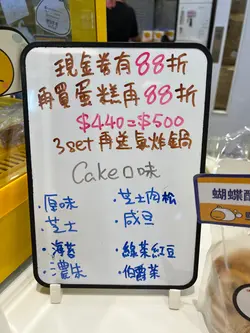 現金券有88折
再買蛋糕再88折
$440=$500
3set再送氣炸鍋
Cake口味
·原味
·芝士
·海苔
·濃味
·芝士肉松
·咸旦
·綠茶紅豆
·伯爵茶
蝴蝶酥